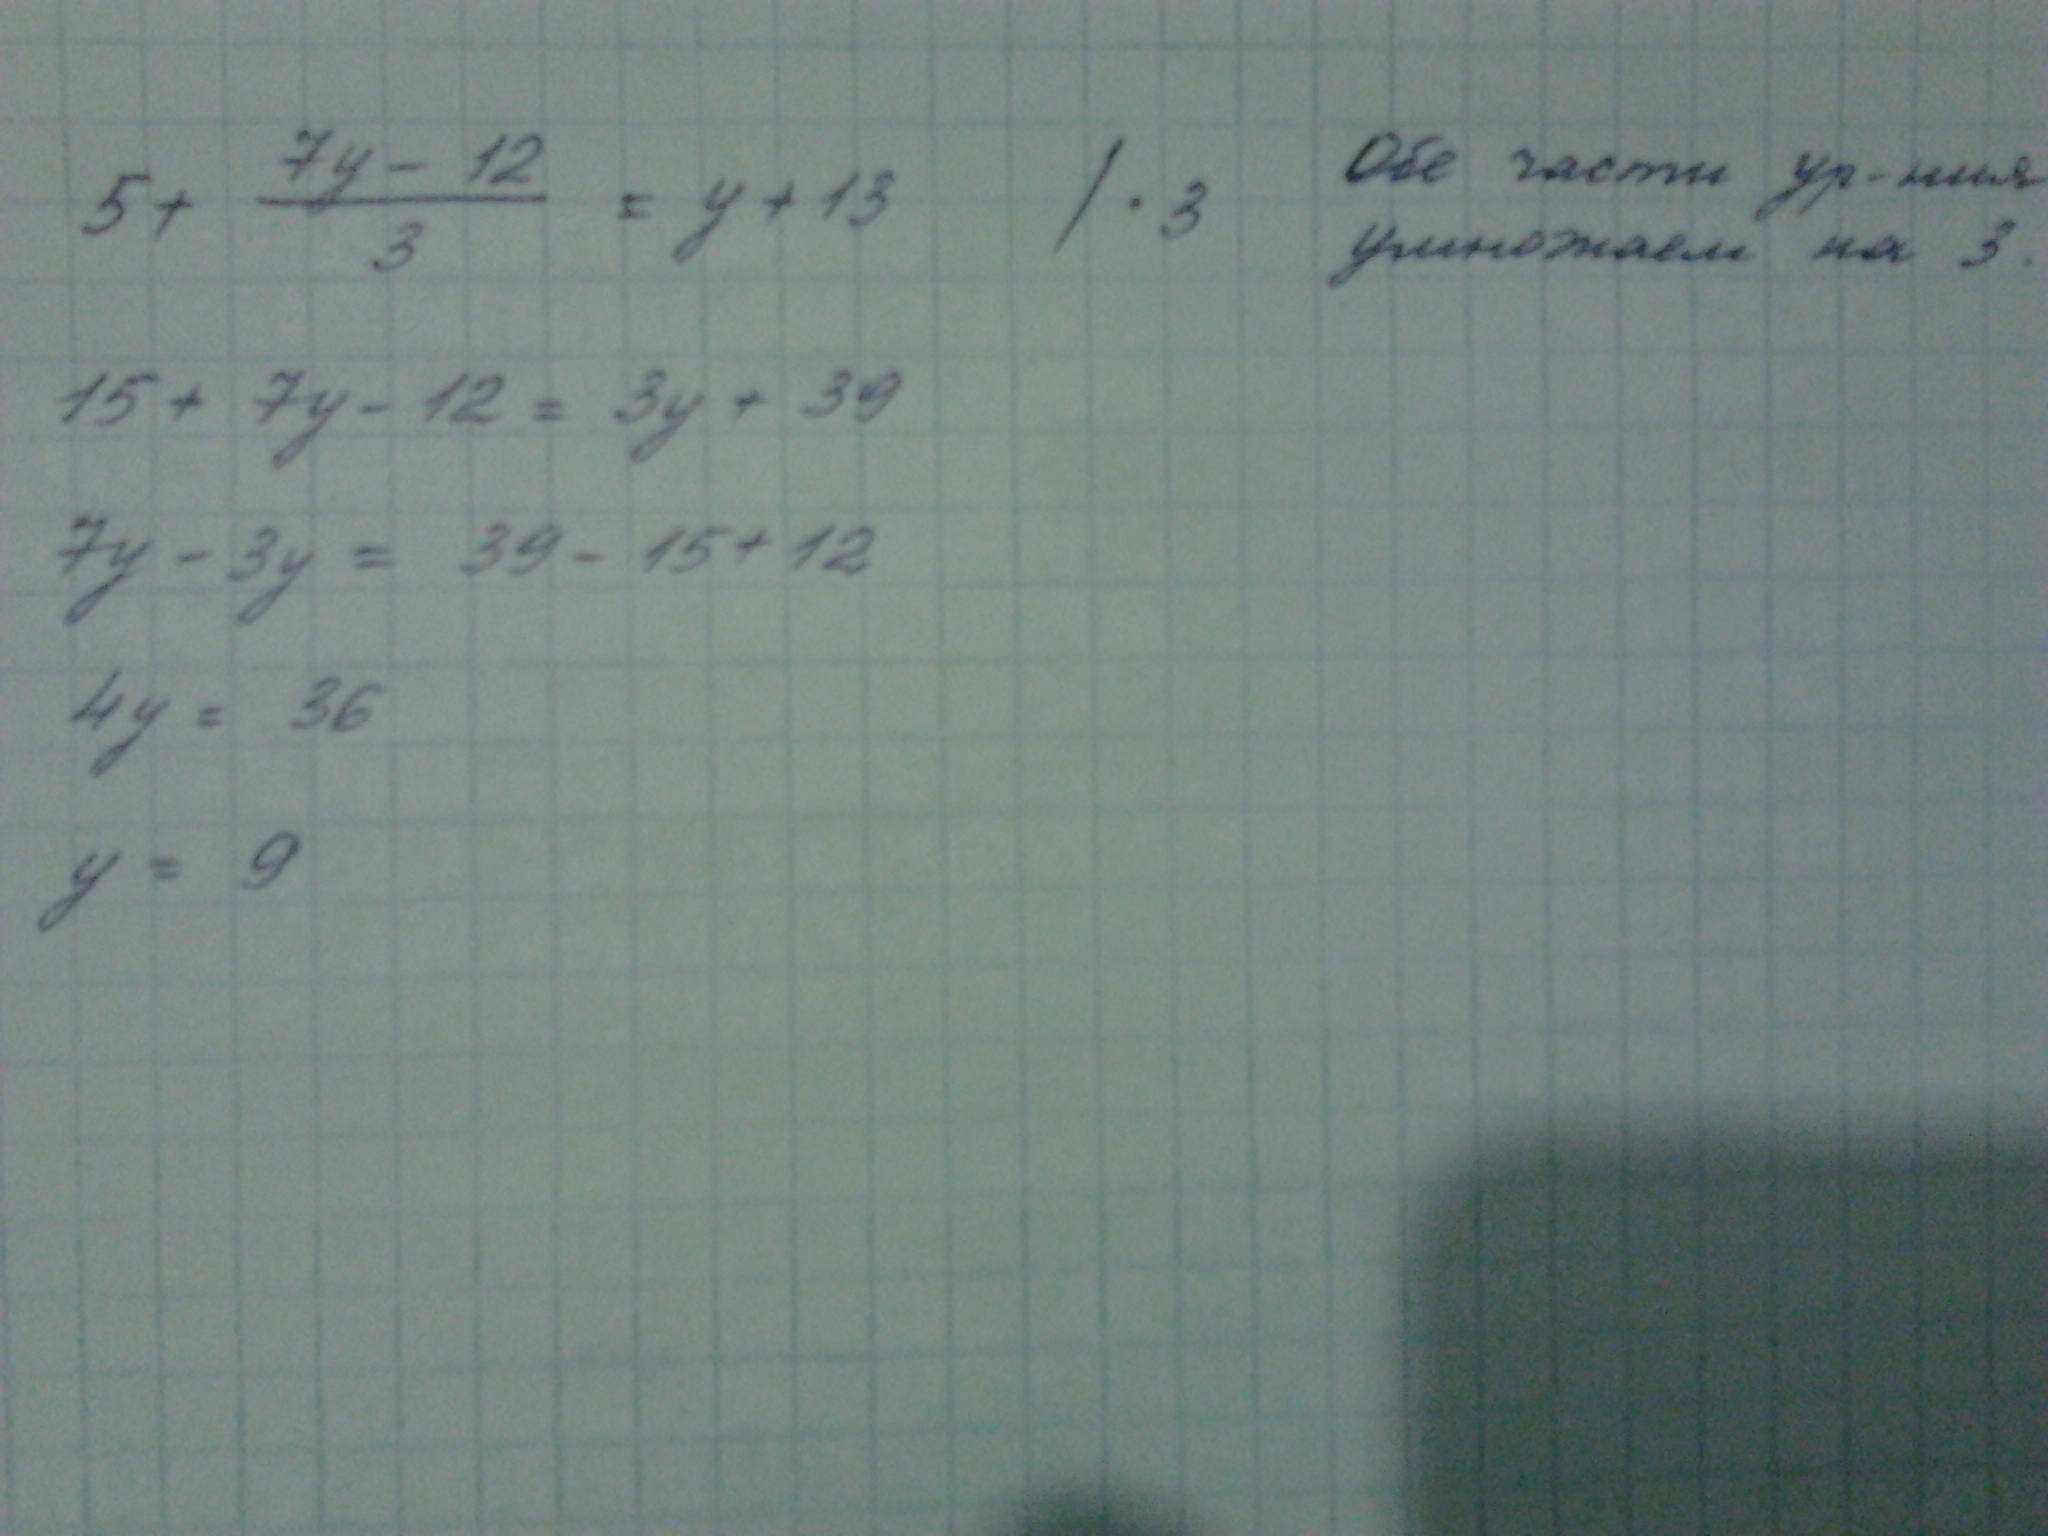 5 + \frac{7y - 12}{3} = y + 13 / · 3 Обе части ур-ния
умножаем на 3.
15 + 7y - 12 = 3y + 39
7y - 3y = 39 - 15 + 12
4y = 36
y = 9